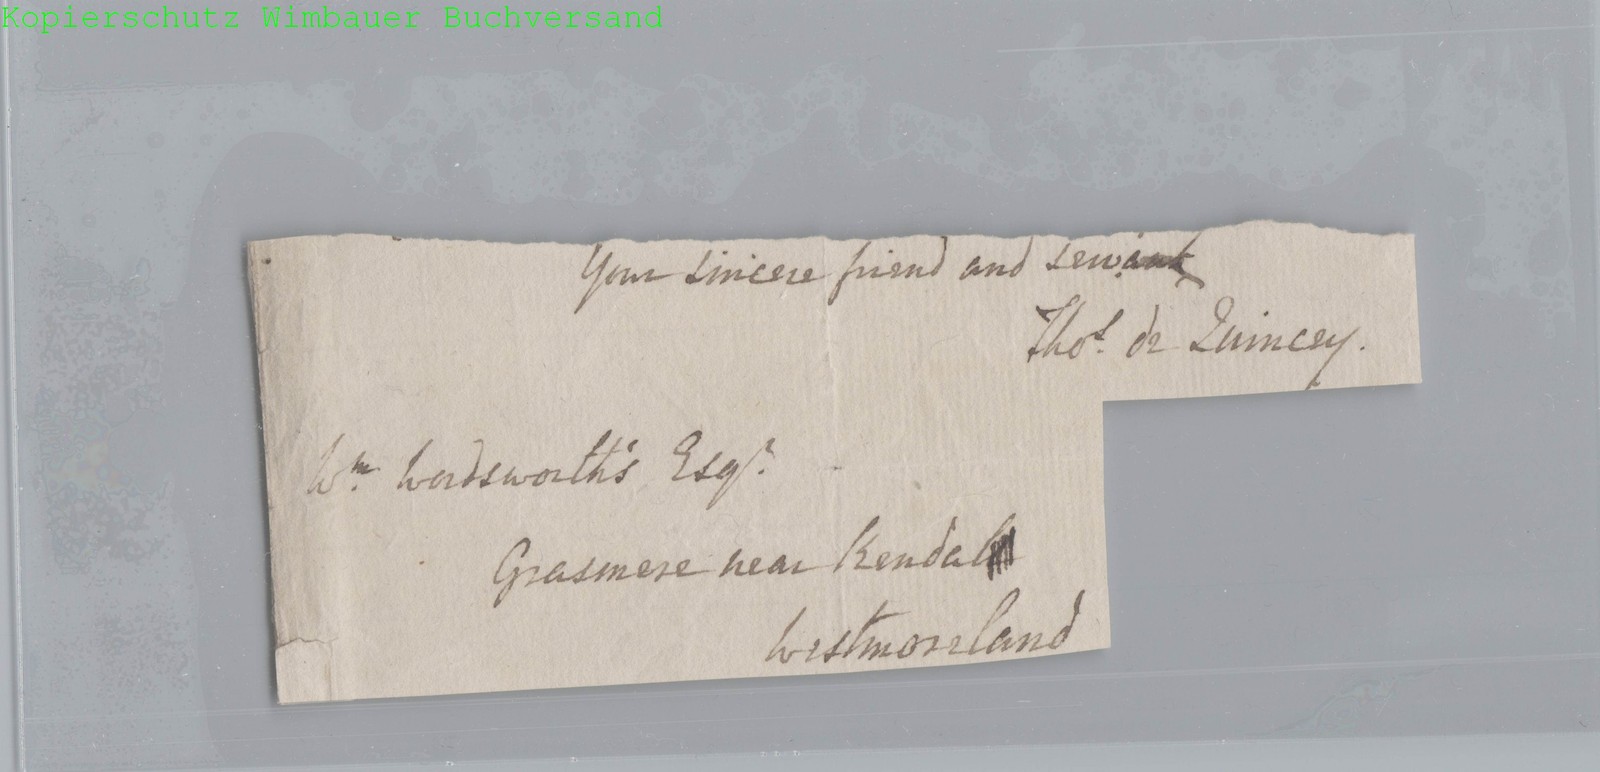 Kopierschutz Wimbauer Buchversand
Your sincere friend and servant
Thos. de Quincey.
Wm Wordsworth's Esqr.
Grasmere near Kendal
Westmoreland